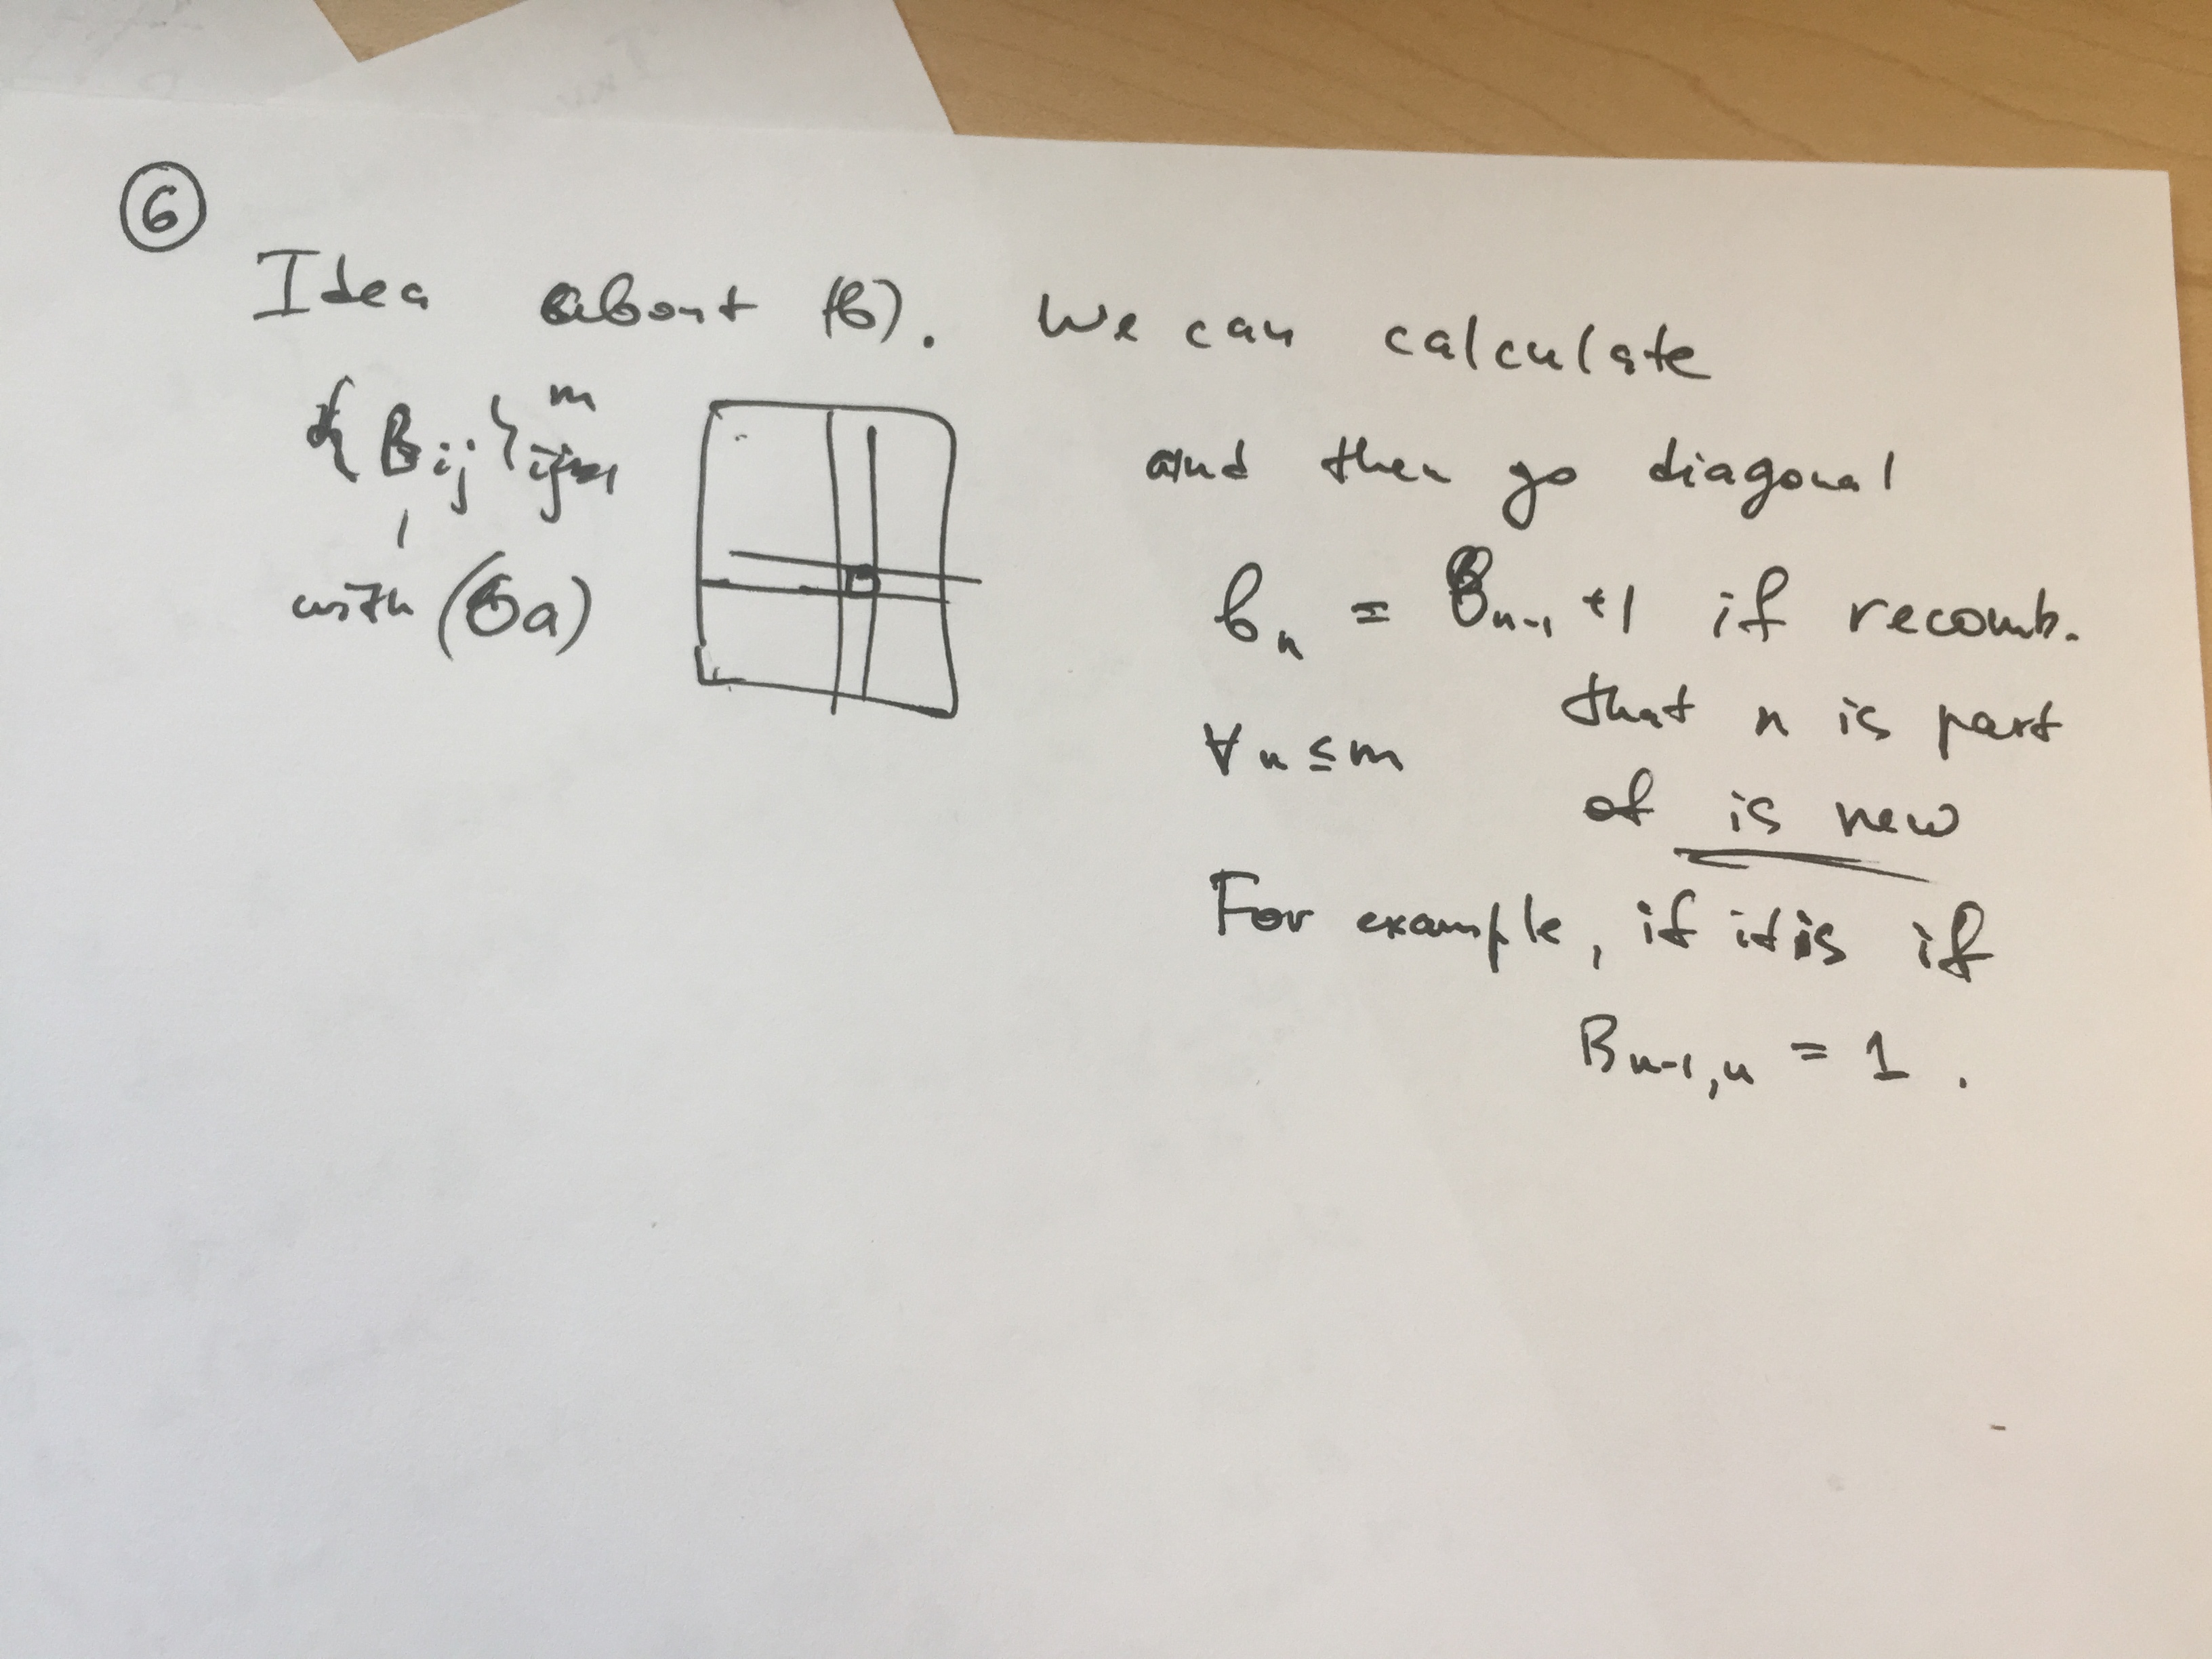 6
Idea about (b). We can calculate
{B_ij}^m_ij=1 and then go diagonal
with (6a) b_n = b_n-1 +1 if recomb.
∀n≤m that n is part
of is new
For example, if it is if
B_n-1,n = 1.